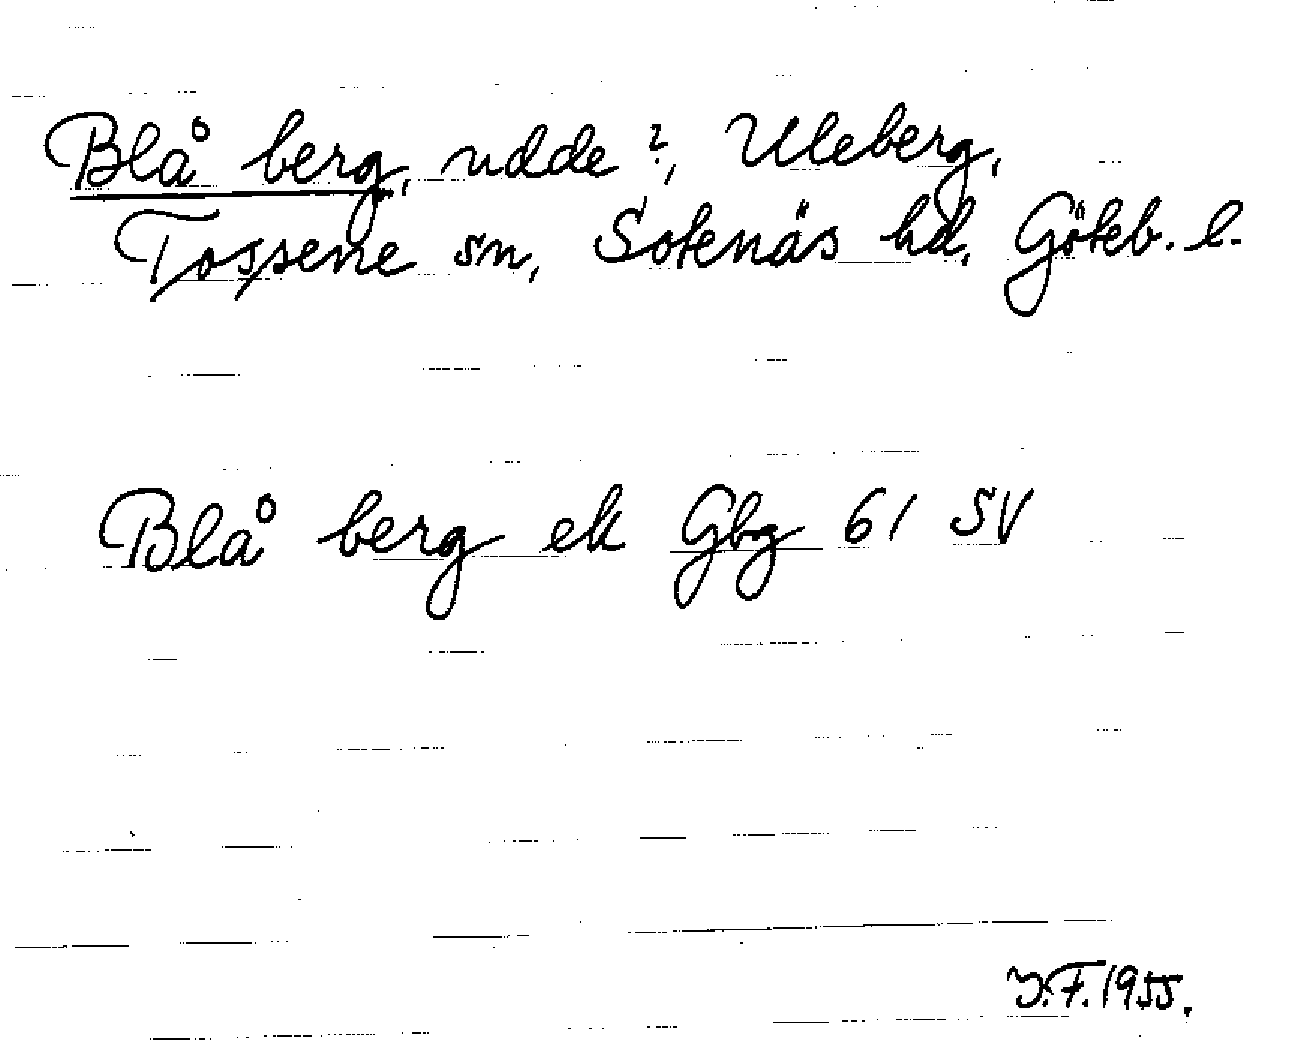 Blå berg, udde ?, Uleberg,
Tossene sn, Sotenäs hd, Göteb. l.
Blå berg ek Gbg 61 SV
J.F. 1955.